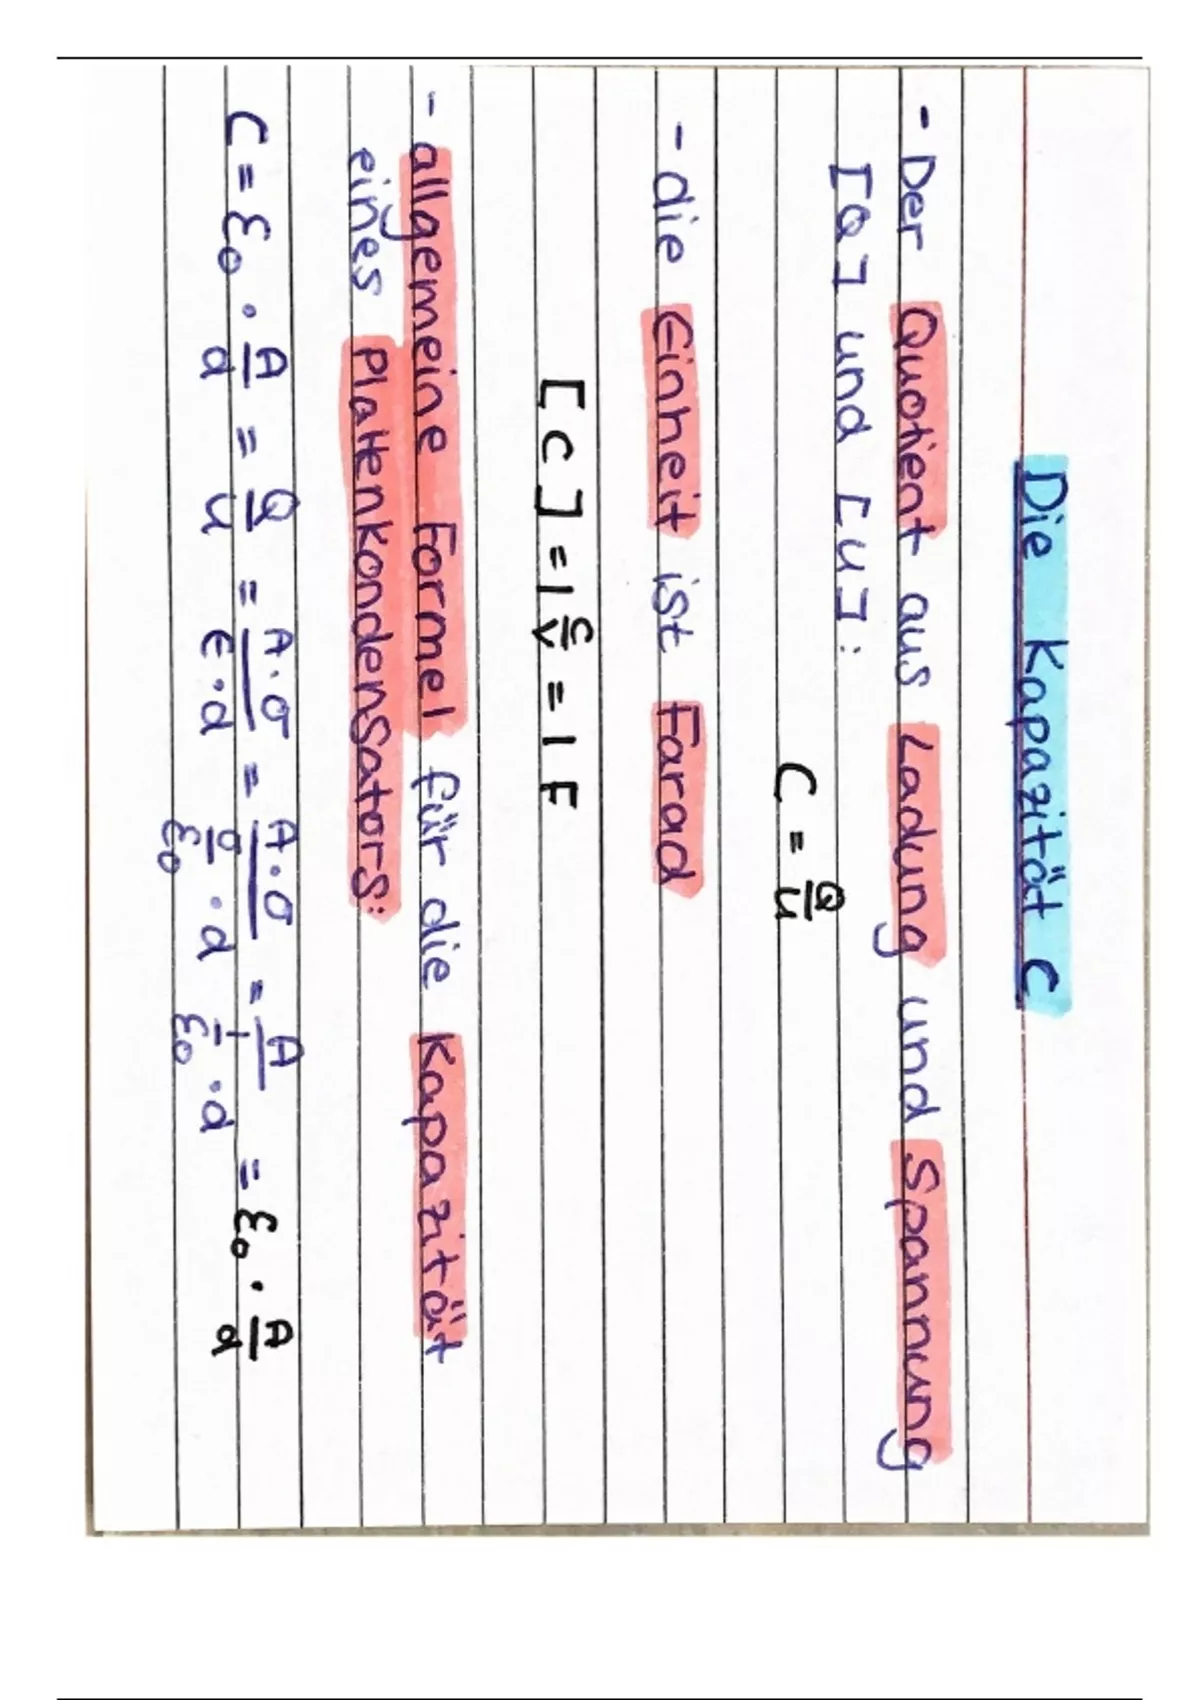 Die Kapazität C
- Der Quotient aus Ladung und Spannung
[Q] und [U]:
C = Q/U
- die Einheit ist Farad
[C] = 1 C/V = 1 F
- allgemeine Formel für die Kapazität
eines Plattenkondensators:
C = ε₀ · A/d = Q/U = A·σ/E·d = A·σ/σ/ε₀·d = A/1/ε₀·d = ε₀ · A/d